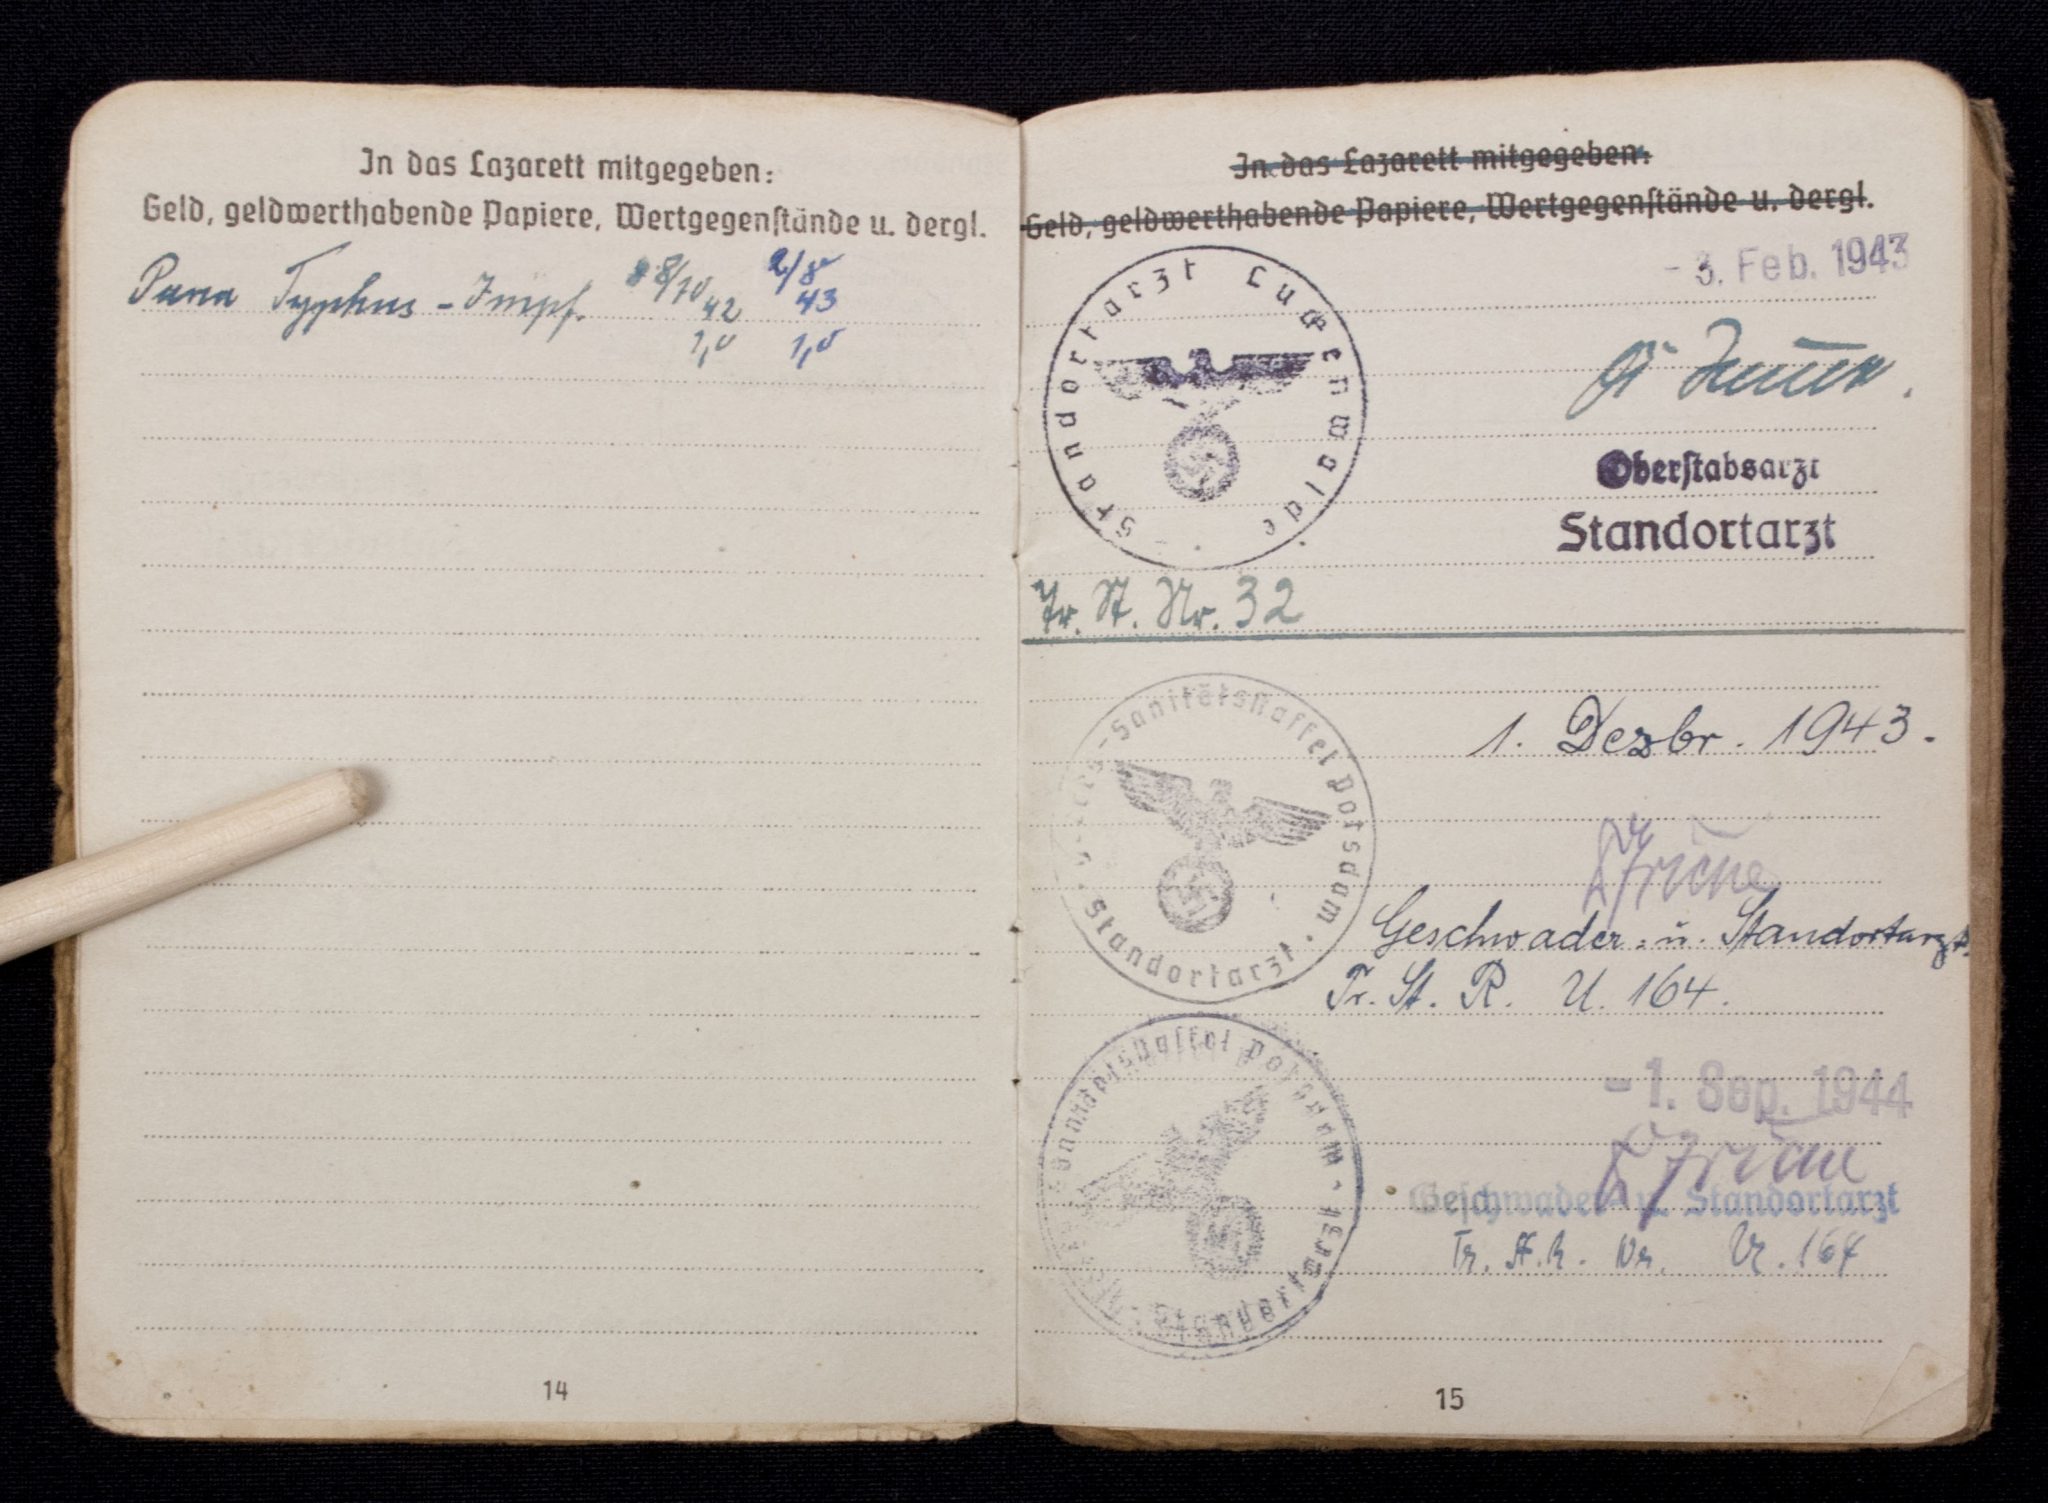 In das Lazarett mitgegeben:
Geld, geldwerthabende Papiere, Wertgegenstände u. dergl.
Para Typhus - Impf. 8/10 42 2/8 43
1,0 1,0
14
In das Lazarett mitgegeben:
Geld, geldwerthabende Papiere, Wertgegenstände u. dergl.
- 3. Feb. 1943
Standortarzt Luckenwalde
Oberstabsarzt
Standortarzt
Tr. St. Nr. 32
Sanitätsstaffel Potsdam
Standortarzt
1. Dezbr. 1943.
Geschwader- u. Standortarzt.
Tr. St. R. U. 164.
Sanitätsstaffel Potsdam
- 1. Sep. 1944
Geschwader- u. Standortarzt
Tr. St. R. Nr. U. 164
15